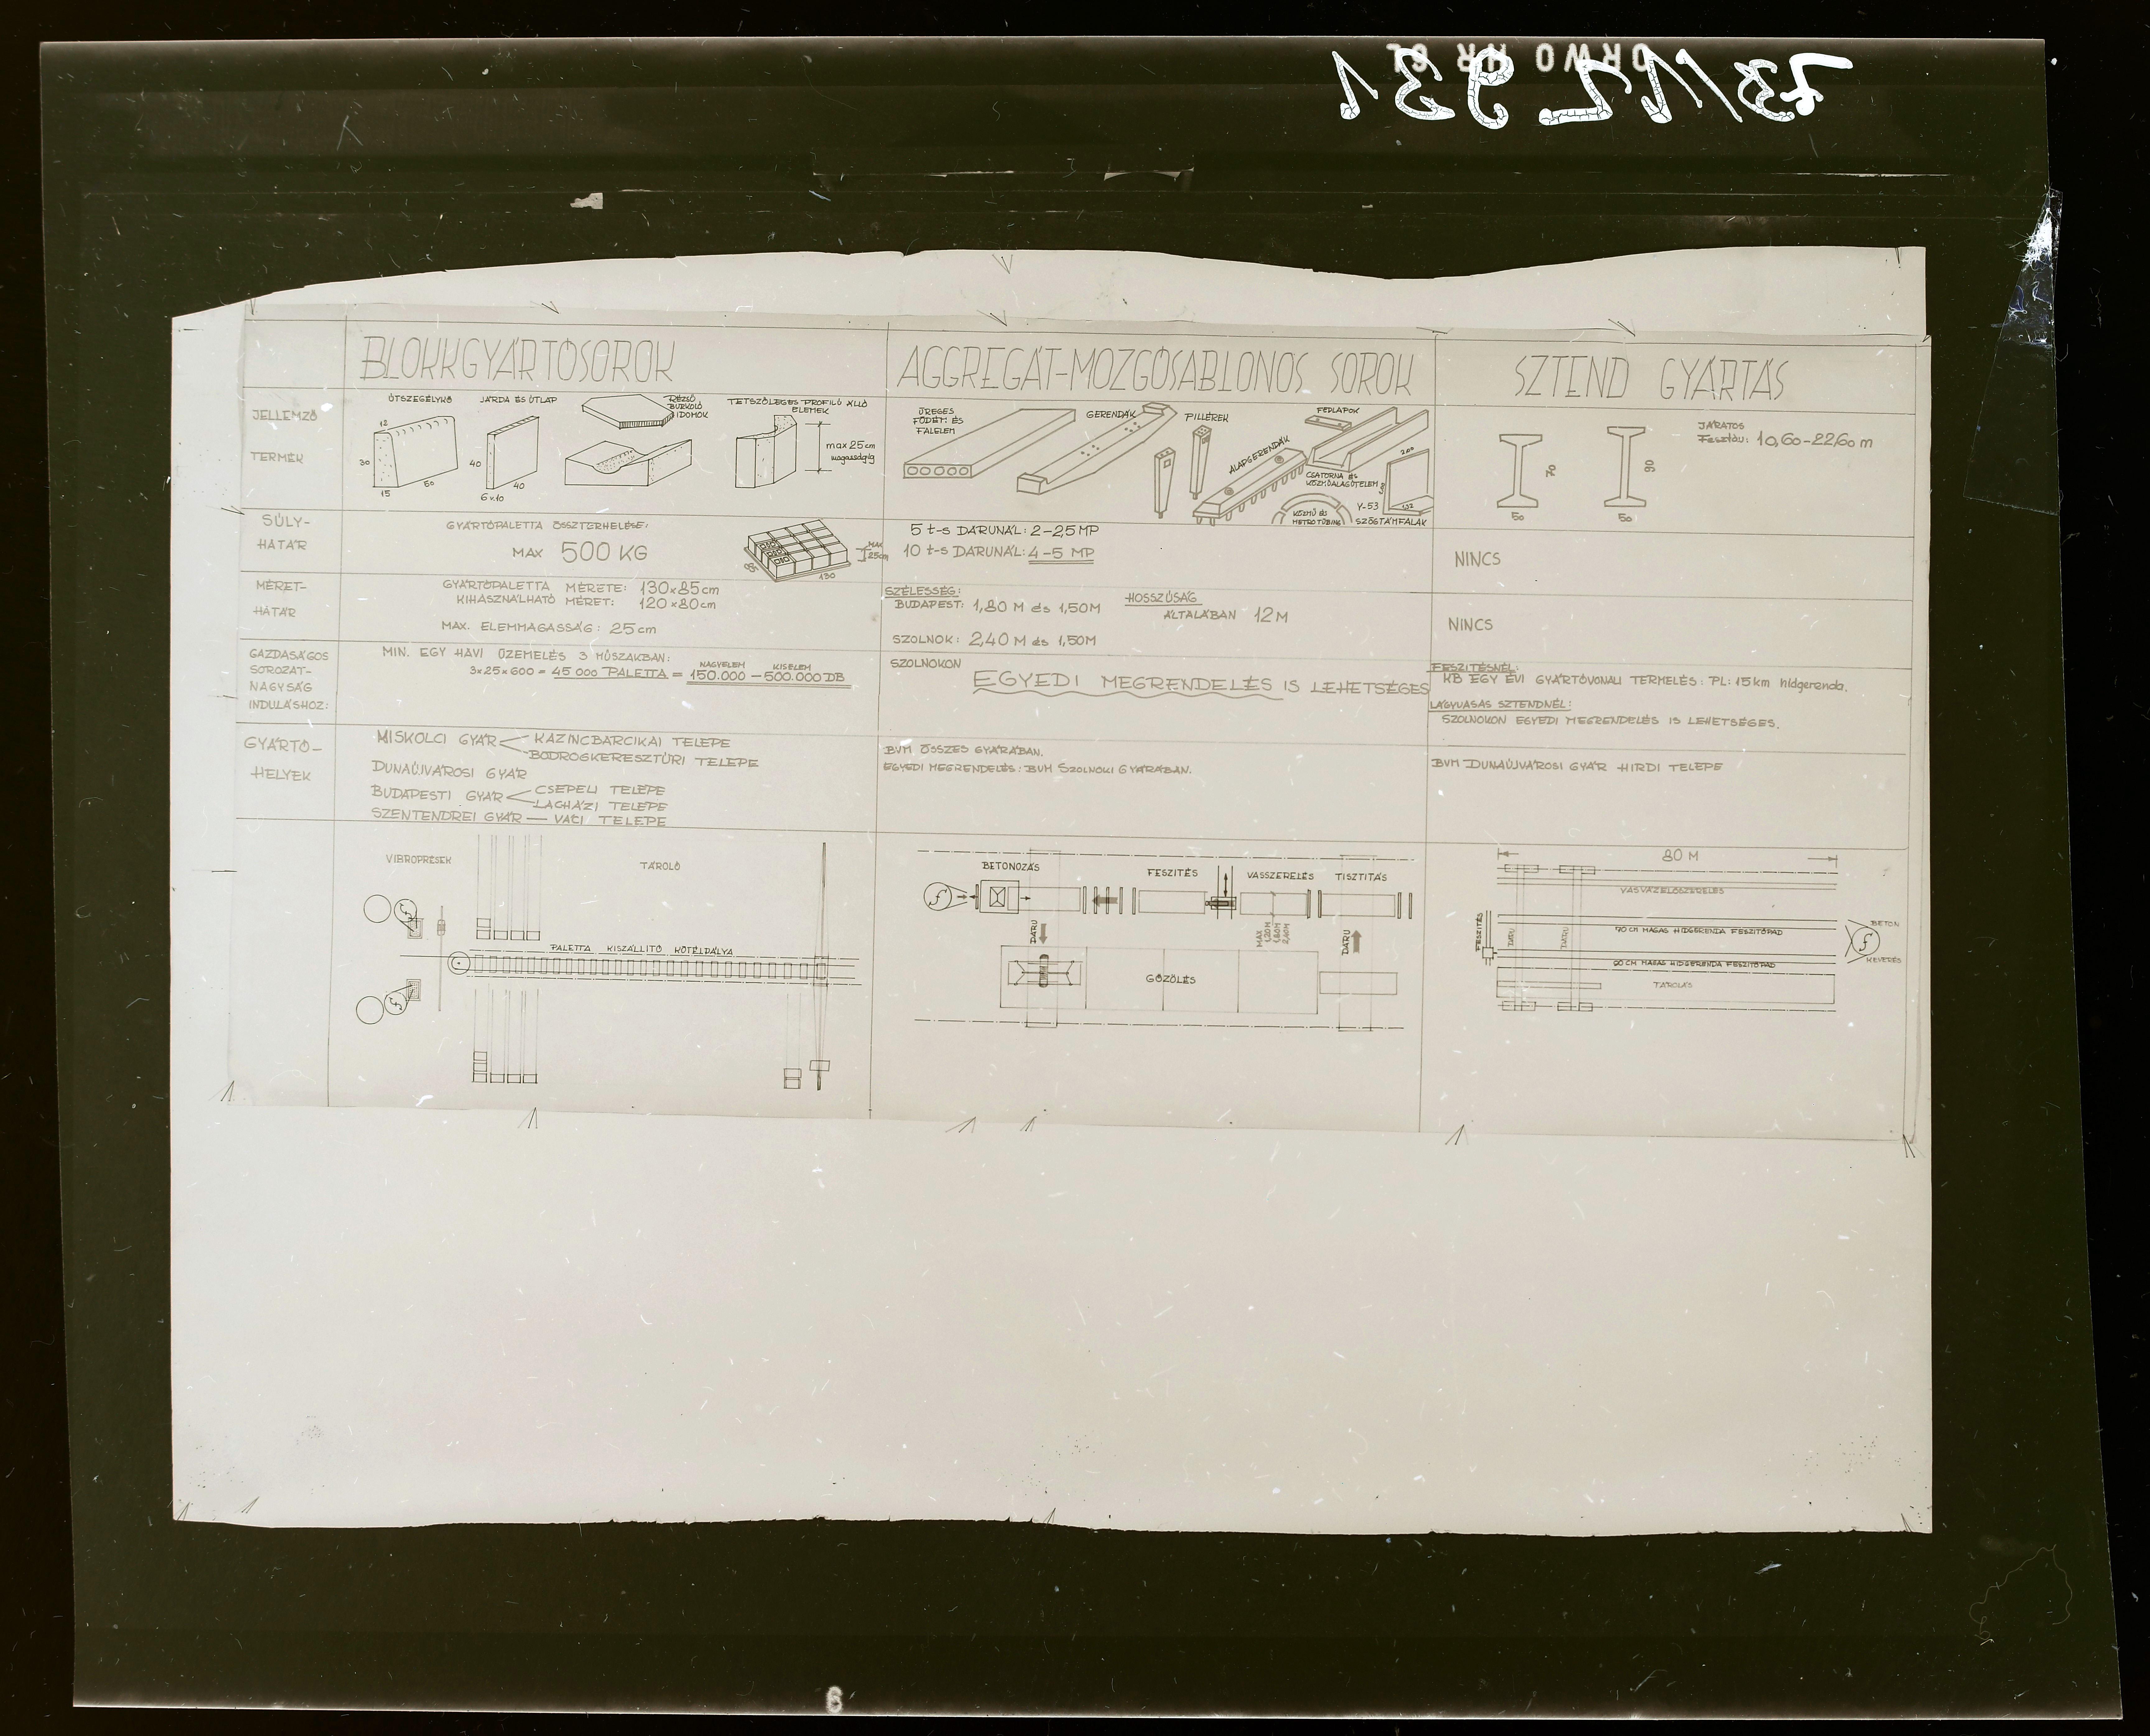 ORWO HR 61
73/12 931
BLOKKGYÁRTÓSOROK
AGGREGÁT-MOZGÓSABLONOS SOROK
SZTEND GYÁRTÁS
JELLEMZŐ
TERMÉK
ÚTSZEGÉLYKŐ
JÁRDA ÉS ÚTLAP
RÉZSŰ
BURKOLÓ
IDOMOK
TETSZŐLEGES PROFILÚ ÁLLÓ
ELEMEK
12
30
15
50
40
6 v.10
40
max 25 cm
magasságig
ÜREGES
FÖDÉM ÉS
FALELEM
GERENDÁK
PILLÉREK
ALAPGERENDÁK
FEDLAPOK
CSATORNA ÉS
KÖZMŰALAGÚTELEM
KÖZMŰ ÉS
METROTÜBING
Y-53
SZÖGTÁMFALAK
200
132
70
50
90
50
JÁRATOS
Fesztáv: 10,60-22,60 m
SÚLY-
HATÁR
GYÁRTÓPALETTA ÖSSZTERHELÉSE:
MAX 500 KG
MAX
25cm
85
130
5 t-s DARUNÁL: 2-2,5 MP
10 t-s DARUNÁL: 4-5 MP
NINCS
MÉRET-
HATÁR
GYÁRTÓPALETTA MÉRETE: 130×85 cm
KIHASZNÁLHATÓ MÉRET: 120×80 cm
MAX. ELEMMAGASSÁG: 25 cm
SZÉLESSÉG:
BUDAPEST: 1,80 M és 1,50 M
SZOLNOK: 2,40 M és 1,50 M
HOSSZÚSÁG
ÁLTALÁBAN 12 M
NINCS
GAZDASÁGOS
SOROZAT-
NAGYSÁG
INDULÁSHOZ:
MIN. EGY HAVI ÜZEMELÉS 3 MŰSZAKBAN:
NAGYELEM KISELEM
3×25×600 = 45 000 PALETTA = 150.000 – 500.000 DB
SZOLNOKON
EGYEDI MEGRENDELÉS IS LEHETSÉGES
FESZÍTÉSNÉL:
KB EGY ÉVI GYÁRTÓVONALI TERMELÉS: PL: 15 km hídgerenda.
LÁGYVASAS SZTENDNÉL:
SZOLNOKON EGYEDI MEGRENDELÉS IS LEHETSÉGES.
GYÁRTÓ-
HELYEK
MISKOLCI GYÁR
KAZINCBARCIKAI TELEPE
BODROGKERESZTÚRI TELEPE
DUNAÚJVÁROSI GYÁR
BUDAPESTI GYÁR
CSEPELI TELEPE
LÁGHÁZI TELEPE
SZENTENDREI GYÁR — VÁCI TELEPE
BVM ÖSSZES GYÁRÁBAN.
EGYEDI MEGRENDELÉS: BVM SZOLNOKI GYÁRÁBAN.
BVM DUNAÚJVÁROSI GYÁR HIRDI TELEPE
VIBROPRÉSEK
TÁROLÓ
PALETTA KISZÁLLÍTÓ KÖTÉLPÁLYA
BETONOZÁS
FESZÍTÉS
VASSZERELÉS
TISZTÍTÁS
DARU
MAX
1,20 M
1,80 M
2,40 M
DARU
GŐZÖLÉS
80 M
VASVÁZELŐSZERELÉS
FESZÍTÉS
DARU
DARU
70 cm MAGAS HÍDGERENDA FESZÍTŐPAD
90 CM MAGAS HÍDGERENDA FESZÍTŐPAD
TÁROLÁS
BETON
KEVERÉS
6